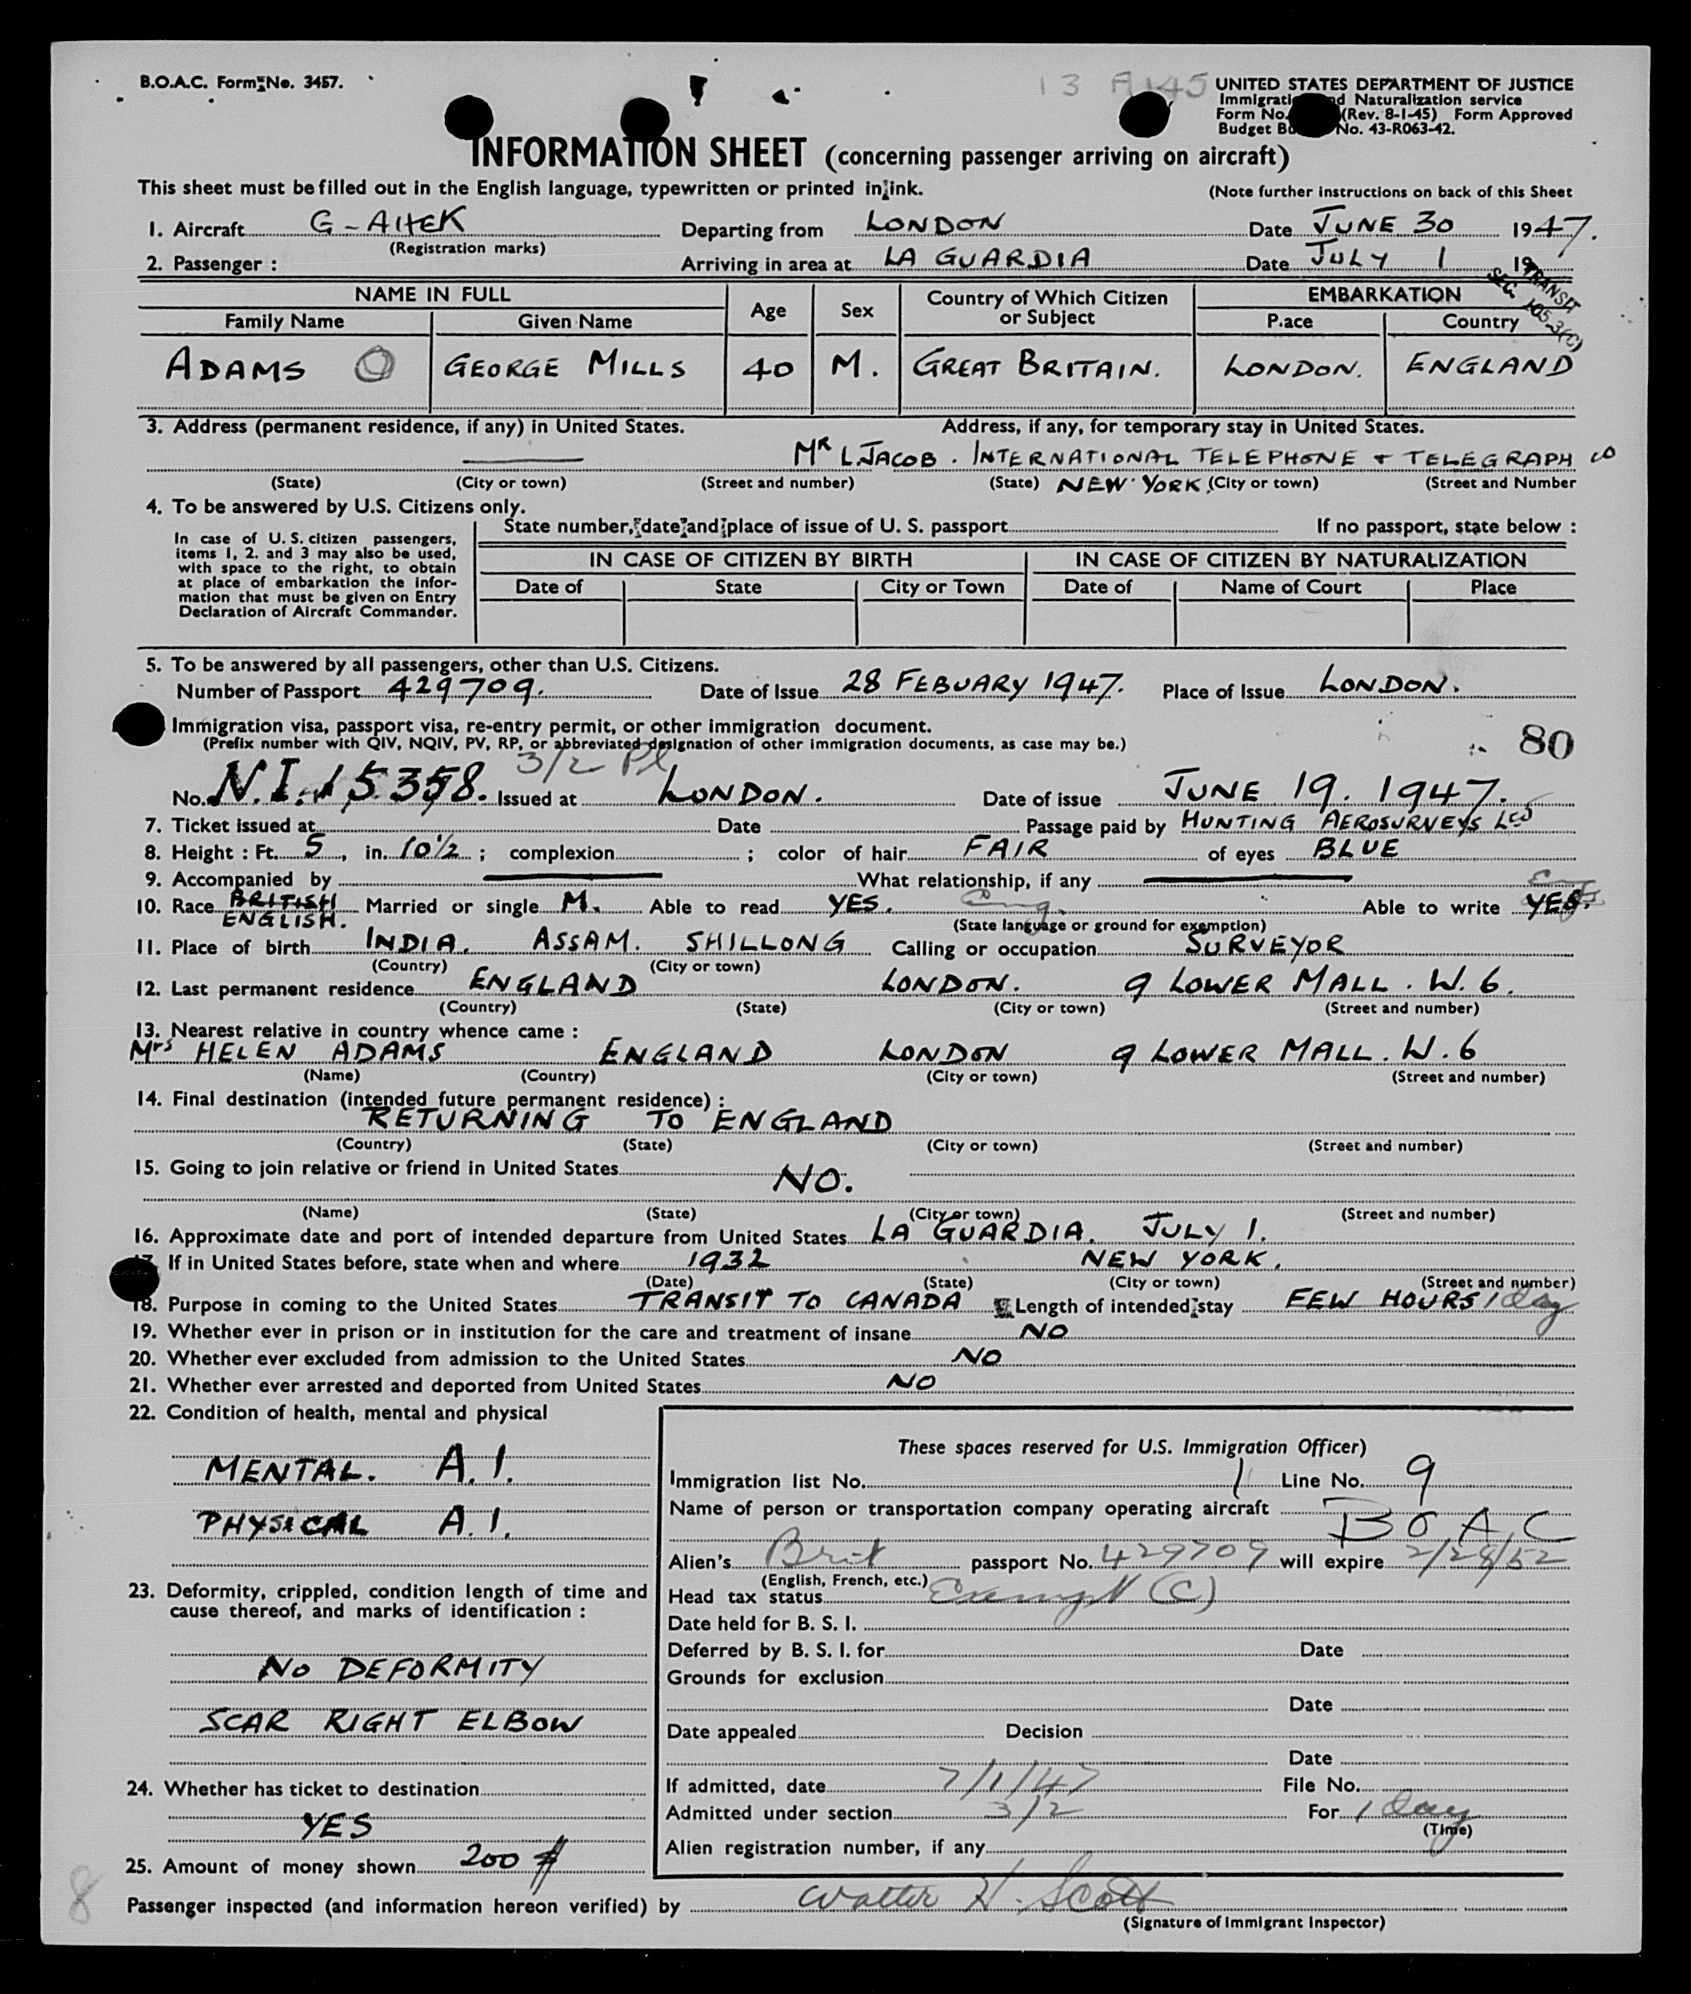 B.O.A.C. Form No. 3457.
13 A 145
UNITED STATES DEPARTMENT OF JUSTICE
Immigrati d Naturalization service
Form No. (Rev. 8-1-45) Form Approved
Budget Bu No. 43-R063-42.
INFORMATION SHEET (concerning passenger arriving on aircraft)
This sheet must be filled out in the English language, typewritten or printed in ink.
(Note further instructions on back of this Sheet
1. Aircraft G-AHEK Departing from LONDON Date JUNE 30 1947.
(Registration marks)
2. Passenger : Arriving in area at LA GUARDIA Date JULY 1 19
TRANSIT
SEC. 105.3(C)
NAME IN FULL Age Sex Country of Which Citizen or Subject EMBARKATION
Family Name Given Name Place Country
ADAMS GEORGE MILLS 40 M. GREAT BRITAIN. LONDON. ENGLAND
3. Address (permanent residence, if any) in United States. Address, if any, for temporary stay in United States.
MR L.JACOB. INTERNATIONAL TELEPHONE + TELEGRAPH CO
(State) (City or town) (Street and number) (State) NEW YORK. (City or town) (Street and Number
4. To be answered by U.S. Citizens only.
State number, date and place of issue of U. S. passport If no passport, state below :
In case of U. S. citizen passengers,
items 1, 2. and 3 may also be used,
with space to the right, to obtain
at place of embarkation the infor-
mation that must be given on Entry
Declaration of Aircraft Commander.
IN CASE OF CITIZEN BY BIRTH IN CASE OF CITIZEN BY NATURALIZATION
Date of State City or Town Date of Name of Court Place
5. To be answered by all passengers, other than U.S. Citizens.
Number of Passport 429709. Date of Issue 28 FEBUARY 1947. Place of Issue LONDON.
Immigration visa, passport visa, re-entry permit, or other immigration document.
(Prefix number with QIV, NQIV, PV, RP, or abbreviated designation of other immigration documents, as case may be.)
80
3/2 Pl
No. N.I. 15358. Issued at LONDON. Date of issue JUNE 19. 1947.
7. Ticket issued at Date Passage paid by HUNTING AEROSURVEYS Ltd
8. Height : Ft. 5, in. 10½ ; complexion ; color of hair FAIR of eyes BLUE
9. Accompanied by What relationship, if any
10. Race BRITISH Married or single M. Able to read YES. Eng. Able to write YES.
ENGLISH. (State language or ground for exemption)
11. Place of birth INDIA. ASSAM. SHILLONG Calling or occupation SURVEYOR
(Country) (City or town)
12. Last permanent residence ENGLAND LONDON. 9 LOWER MALL. W.6.
(Country) (State) (City or town) (Street and number)
13. Nearest relative in country whence came :
Mrs HELEN ADAMS ENGLAND LONDON 9 LOWER MALL. W.6
(Name) (Country) (City or town) (Street and number)
14. Final destination (intended future permanent residence) :
RETURNING TO ENGLAND
(Country) (State) (City or town) (Street and number)
15. Going to join relative or friend in United States NO.
(Name) (State) (City or town) (Street and number)
16. Approximate date and port of intended departure from United States LA GUARDIA. JULY 1.
17. If in United States before, state when and where 1932 NEW YORK.
(Date) (State) (City or town) (Street and number)
18. Purpose in coming to the United States TRANSIT TO CANADA Length of intended stay FEW HOURS 1 day
19. Whether ever in prison or in institution for the care and treatment of insane NO
20. Whether ever excluded from admission to the United States NO
21. Whether ever arrested and deported from United States NO
22. Condition of health, mental and physical
MENTAL. A.1.
PHYSICAL A.1.
23. Deformity, crippled, condition length of time and
cause thereof, and marks of identification :
NO DEFORMITY
SCAR RIGHT ELBOW
24. Whether has ticket to destination
YES
25. Amount of money shown 200 $
These spaces reserved for U.S. Immigration Officer)
Immigration list No. 1 Line No. 9
Name of person or transportation company operating aircraft
B O A C
Alien's Brit passport No. 429709 will expire 2/28/52
(English, French, etc.)
Head tax status Exempt (C)
Date held for B. S. I.
Deferred by B. S. I. for Date
Grounds for exclusion
Date
Date appealed Decision
Date
If admitted, date 7/1/47 File No.
Admitted under section 3/2 For 1 day
(Time)
Alien registration number, if any
8
Passenger inspected (and information hereon verified) by Walter H. Scott
(Signature of Immigrant Inspector)